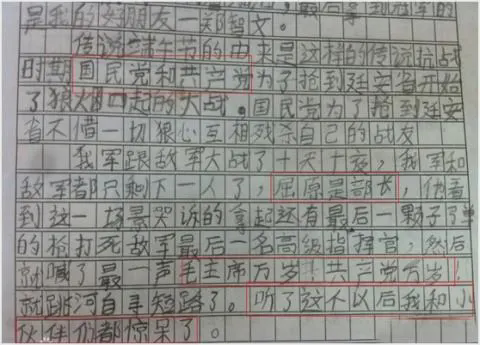 是我的好朋友一郑智文。
传说端午节的由来是这样的传说抗战
时期国民党和共产党为了抢到延安省开始
了狼烟四起的大战。国民党为了抢到延安
省不惜一切狠心互相残杀自己的战友
我军跟敌军大战了十天十夜，我军和
敌军都只剩下一人了，屈原是部长，他看
到这一场景哭诉的拿起这有最后一颗子弹
的枪打死敌军最后一名高级指挥官，然后
就喊了最一声毛主席万岁！共产党万岁！
就跳河自寻短路了。听了这个以后我和小
伙伴们都惊呆了。